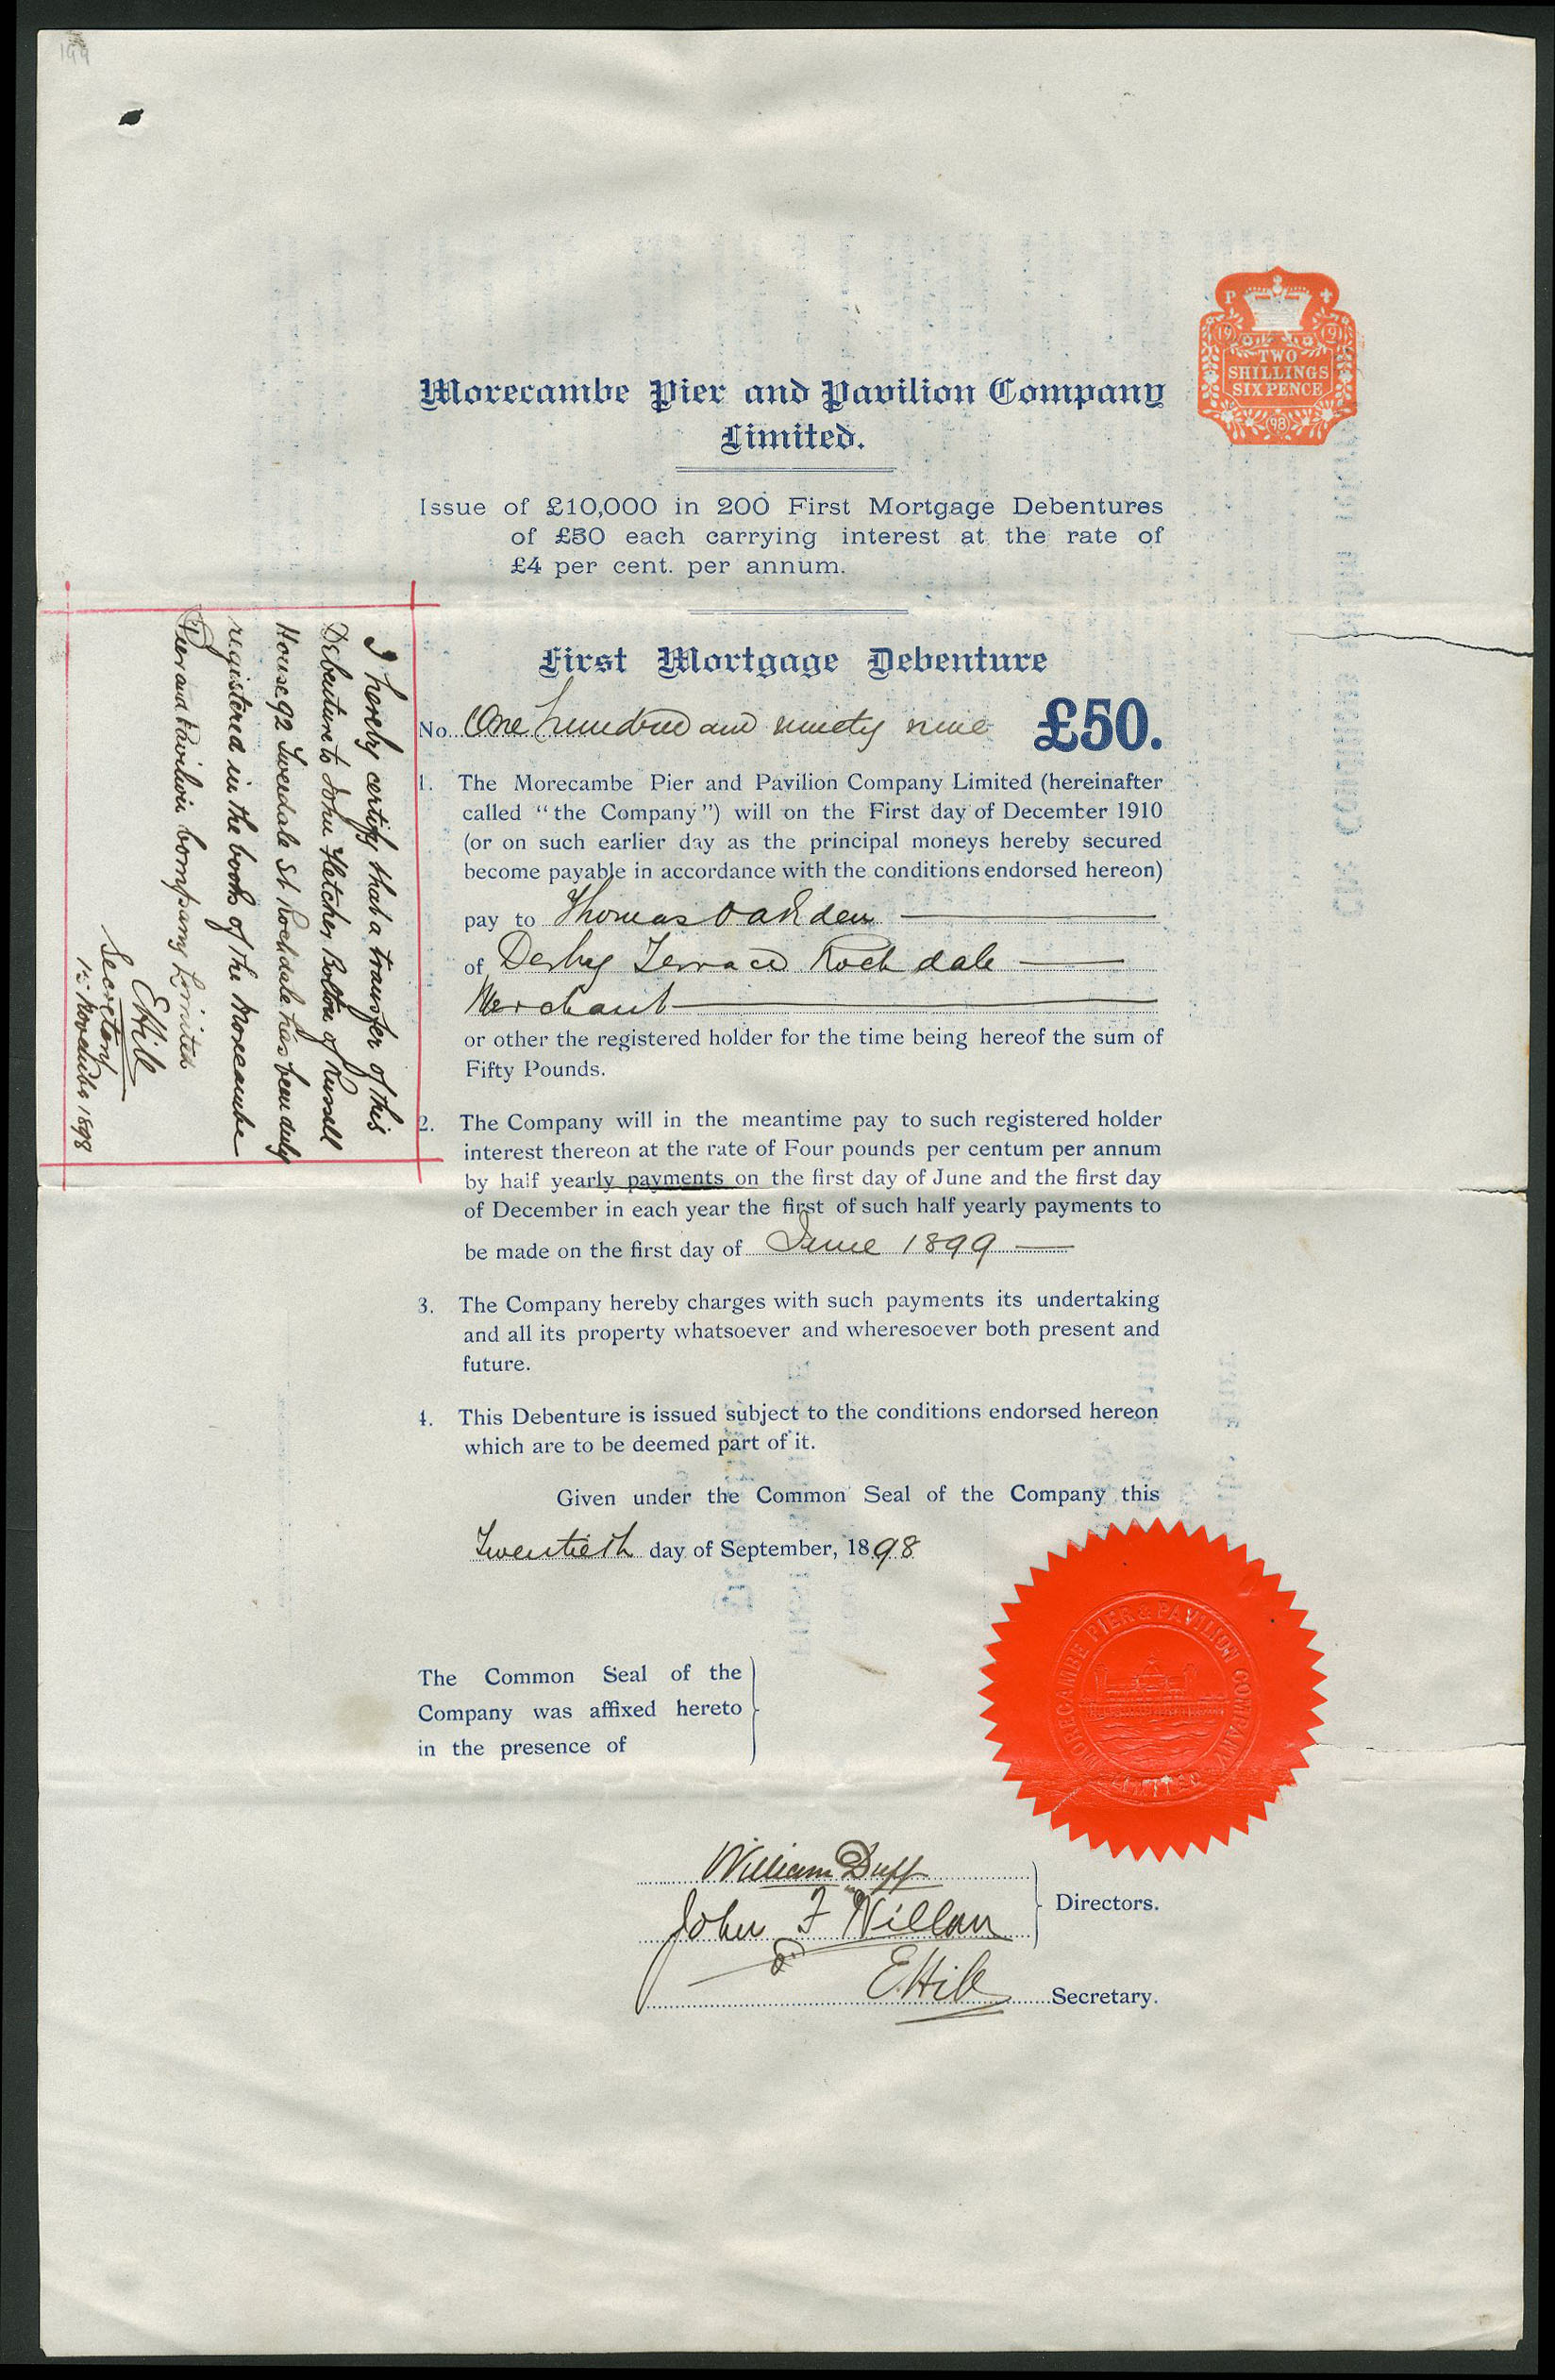 199
P
19 19
TWO
SHILLINGS
SIXPENCE
98
Morecambe Pier and Pavilion Company
Limited.
Issue of £10,000 in 200 First Mortgage Debentures
of £50 each carrying interest at the rate of
£4 per cent. per annum.
First Mortgage Debenture
No. One hundred and ninety nine £50.
1. The Morecambe Pier and Pavilion Company Limited (hereinafter
called "the Company") will on the First day of December 1910
(or on such earlier day as the principal moneys hereby secured
become payable in accordance with the conditions endorsed hereon)
pay to Thomas Oakden
of Derby Terrace Rochdale
Merchant
or other the registered holder for the time being hereof the sum of
Fifty Pounds.
2. The Company will in the meantime pay to such registered holder
interest thereon at the rate of Four pounds per centum per annum
by half yearly payments on the first day of June and the first day
of December in each year the first of such half yearly payments to
be made on the first day of June 1899
3. The Company hereby charges with such payments its undertaking
and all its property whatsoever and wheresoever both present and
future.
4. This Debenture is issued subject to the conditions endorsed hereon
which are to be deemed part of it.
Given under the Common Seal of the Company this
Twentieth day of September, 1898
The Common Seal of the
Company was affixed hereto
in the presence of
MORECAMBE PIER & PAVILION COMPANY LIMITED
William Duff
John F Willan
Directors.
E. Hill Secretary.
I hereby certify that a transfer of this
Debenture to John Fletcher Bolton of Russell
House 92 Tweedale St Rochdale has been duly
registered in the books of the Morecambe
Pier and Pavilion Company Limited
E Hill
Secretary
1st November 1898